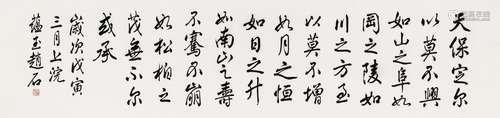 天保定尔
以莫不興
如山之阜如
岡之陵如
川之方至
以莫不增
如月之恒
如日之升
如南山之壽
不騫不崩
如松柏之
茂無不尔
或承
歲次戊寅
三月上浣
蕴玉趙石